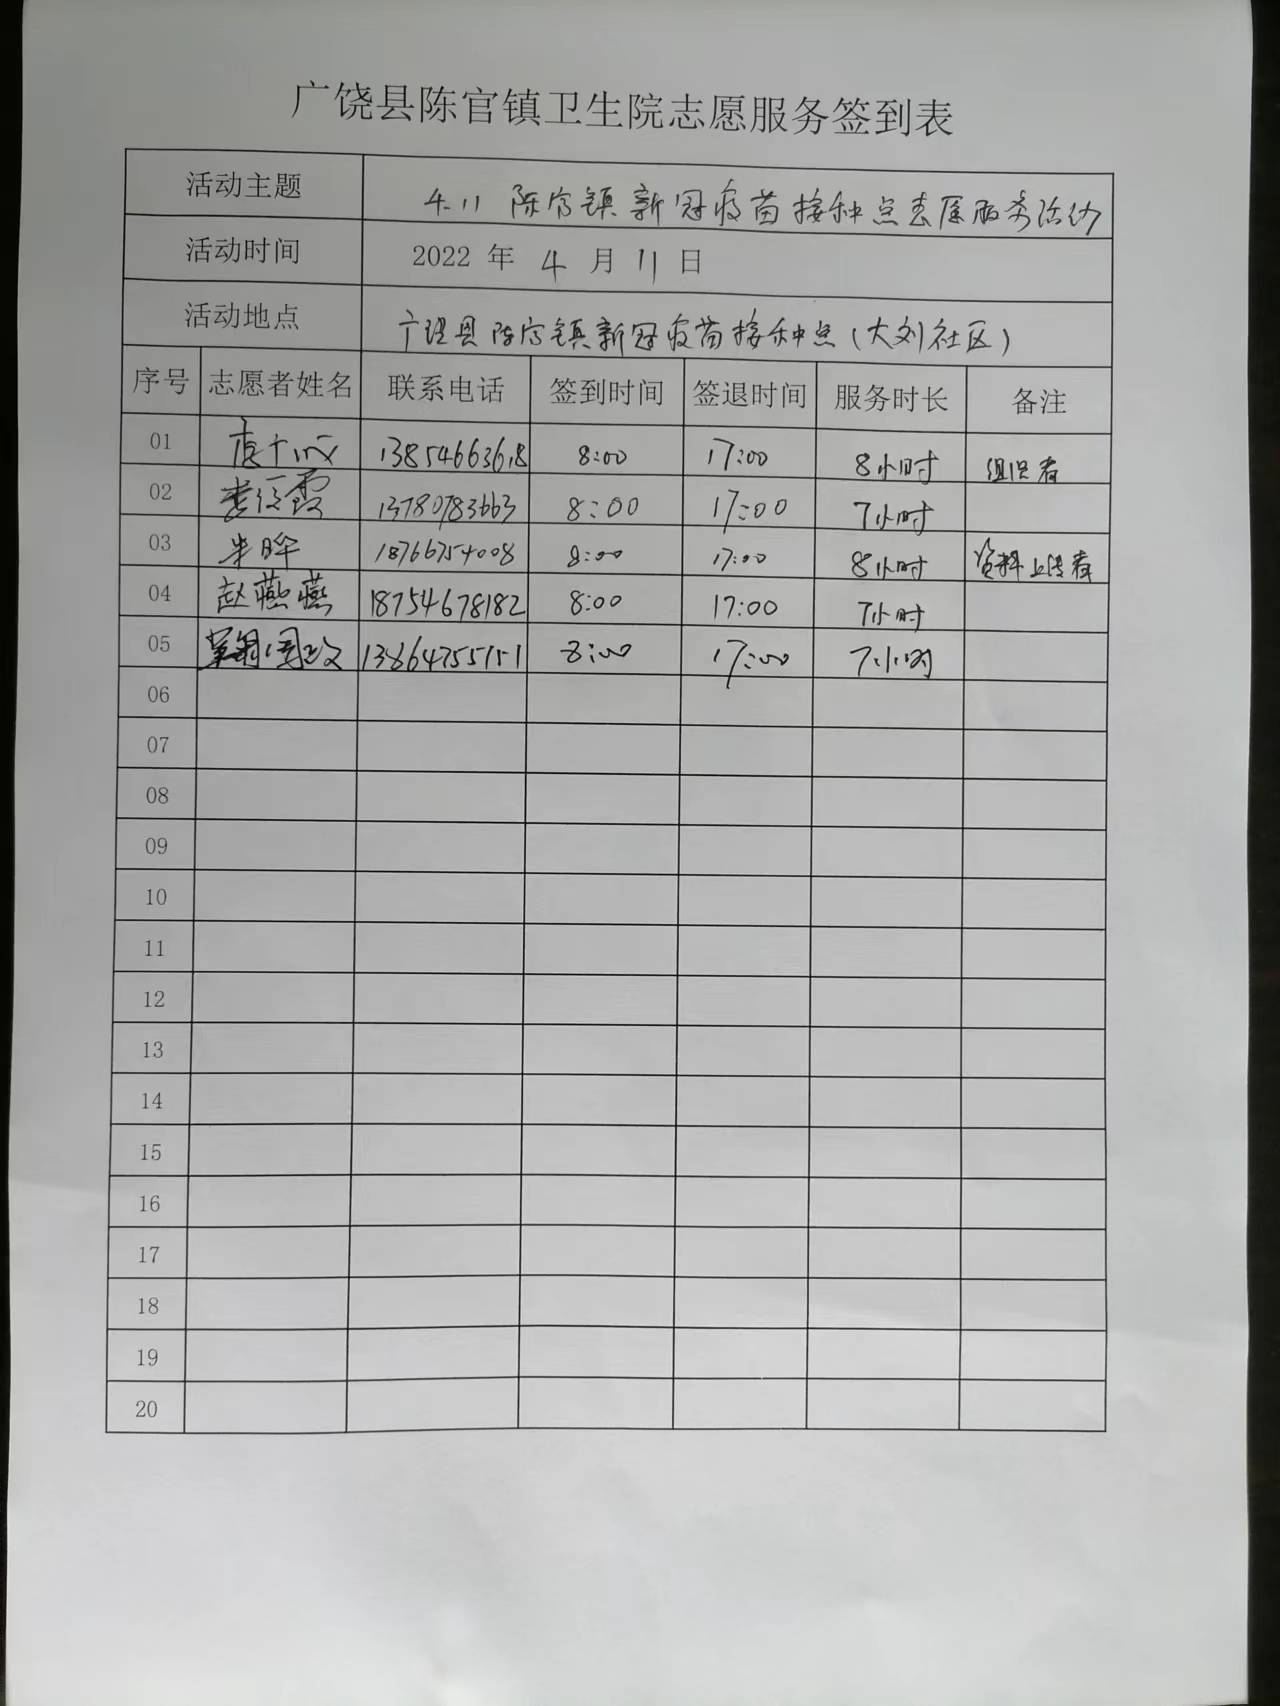 广饶县陈官镇卫生院志愿服务签到表
活动主题 4.11 陈官镇新冠疫苗接种点志愿服务活动
活动时间 2022 年 4 月 11 日
活动地点 广饶县陈官镇新冠疫苗接种点(大刘社区)
序号 志愿者姓名 联系电话 签到时间 签退时间 服务时长 备注
01 8:00 17:00 8小时 组织者
02 13780783663 8:00 17:00 7小时
03 朱晔 18766754008 8:00 17:00 8小时 资料上传者
04 赵燕燕 18754678182 8:00 17:00 7小时
05 13864755151 8:00 17:00 7小时
06
07
08
09
10
11
12
13
14
15
16
17
18
19
20